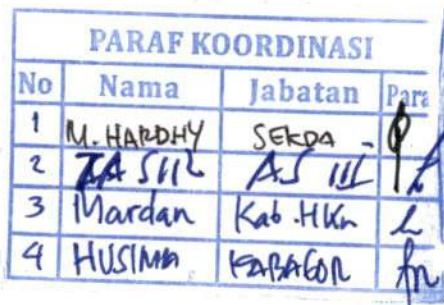 PARAF KOORDINASI
No Nama Jabatan Para
1 M. HARDHY SEKDA
2 AS III
3 Mardan Kab. HKm
4 HUSIMA KABAGOR